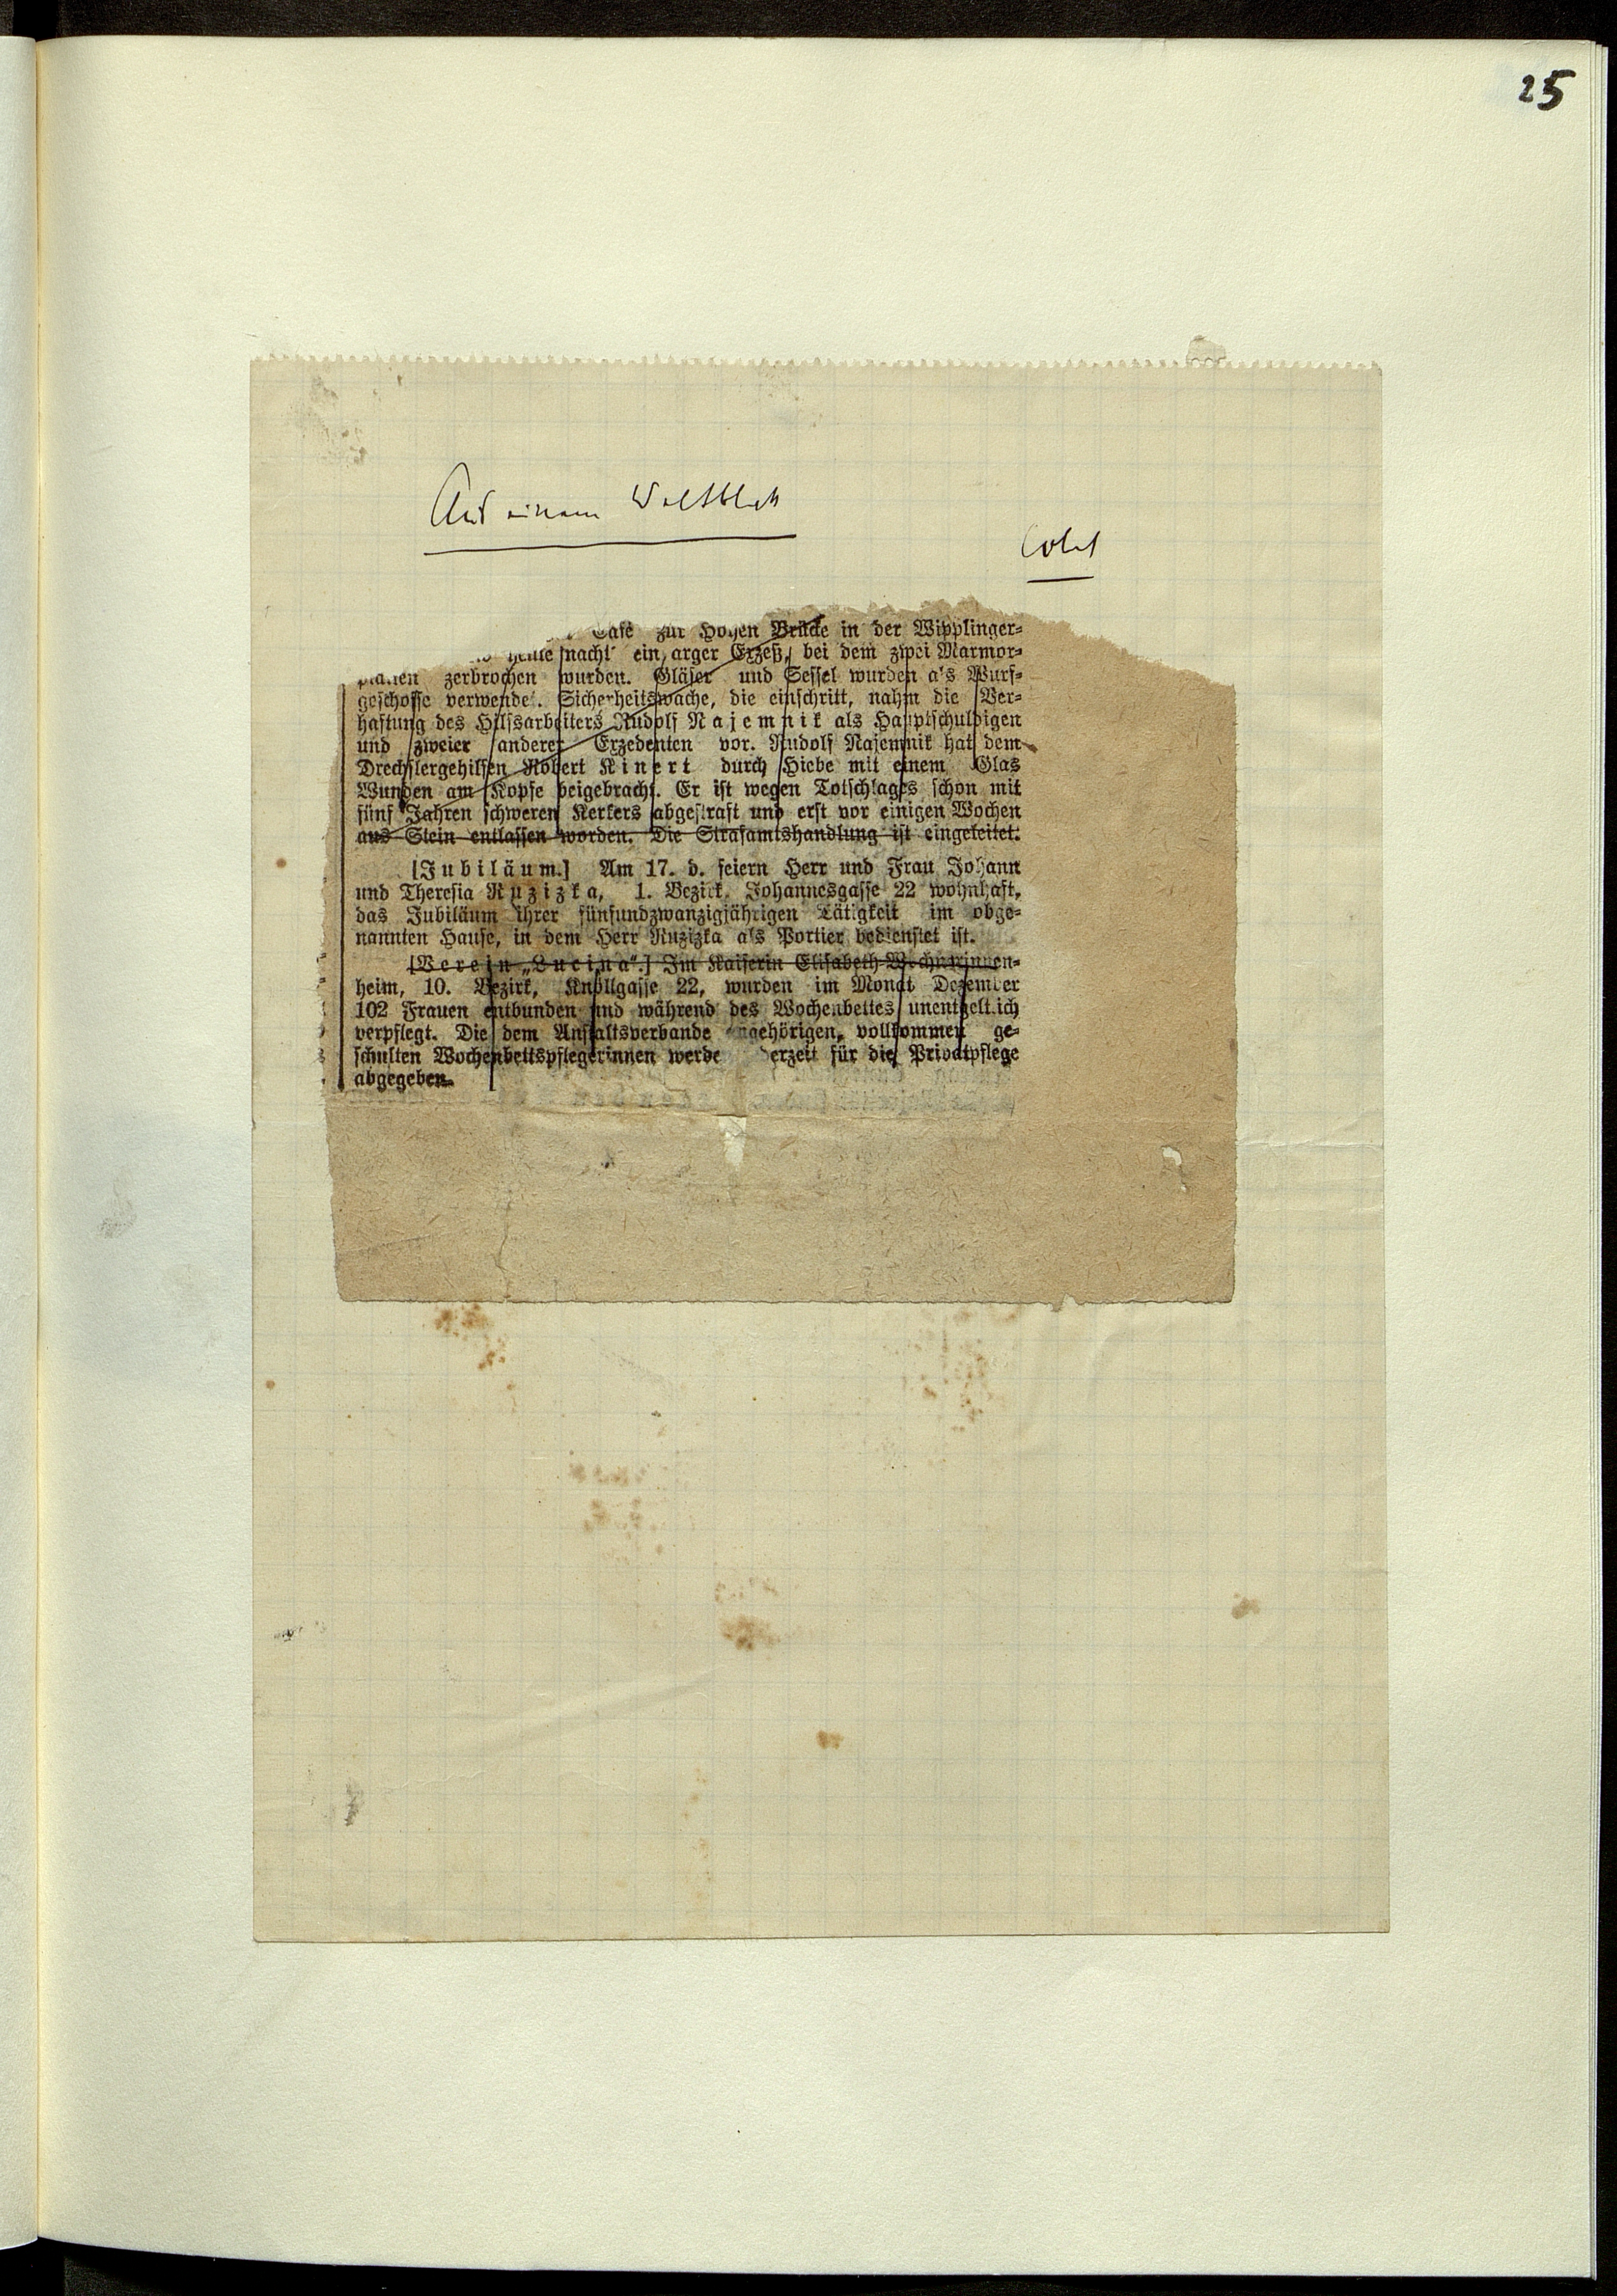 25
Aus einem Weltblatt
Café zur Hohen Brücke in der Wipplinger-
heute nacht ein arger Exzeß, bei dem zwei Marmor-
platten zerbrochen wurden. Gläser und Sessel wurden als Wurf-
geschosse verwendet. Sicherheitswache, die einschritt, nahm die Ver-
haftung des Hilfsarbeiters Rudolf Najemnik als Hauptschuldigen
und zweier anderer Exzedenten vor. Rudolf Najemnik hat dem
Drechslergehilfen Robert Kinert durch Hiebe mit einem Glas
Wunden am Kopfe beigebracht. Er ist wegen Totschlages schon mit
fünf Jahren schweren Kerkers abgestraft und erst vor einigen Wochen
aus Stein entlassen worden. Die Strafamtshandlung ist eingeleitet.
[Jubiläum.] Am 17. d. feiern Herr und Frau Johann
und Theresia Ruzizka, 1. Bezirk, Johannesgasse 22 wohnhaft,
das Jubiläum ihrer fünfundzwanzigjährigen Tätigkeit im obge-
nannten Hause, in dem Herr Ruzizka als Portier bedienstet ist.
[Verein „Lucina“.] Im Kaiserin Elisabeth-Wöchnerinnen-
heim, 10. Bezirk, Knöllgasse 22, wurden im Monat Dezember
102 Frauen entbunden und während des Wochenbettes unentgeltlich
verpflegt. Die dem Anstaltsverbande angehörigen, vollkommen ge-
schulten Wochenbettspflegerinnen werde derzeit für die Privatpflege
abgegeben.